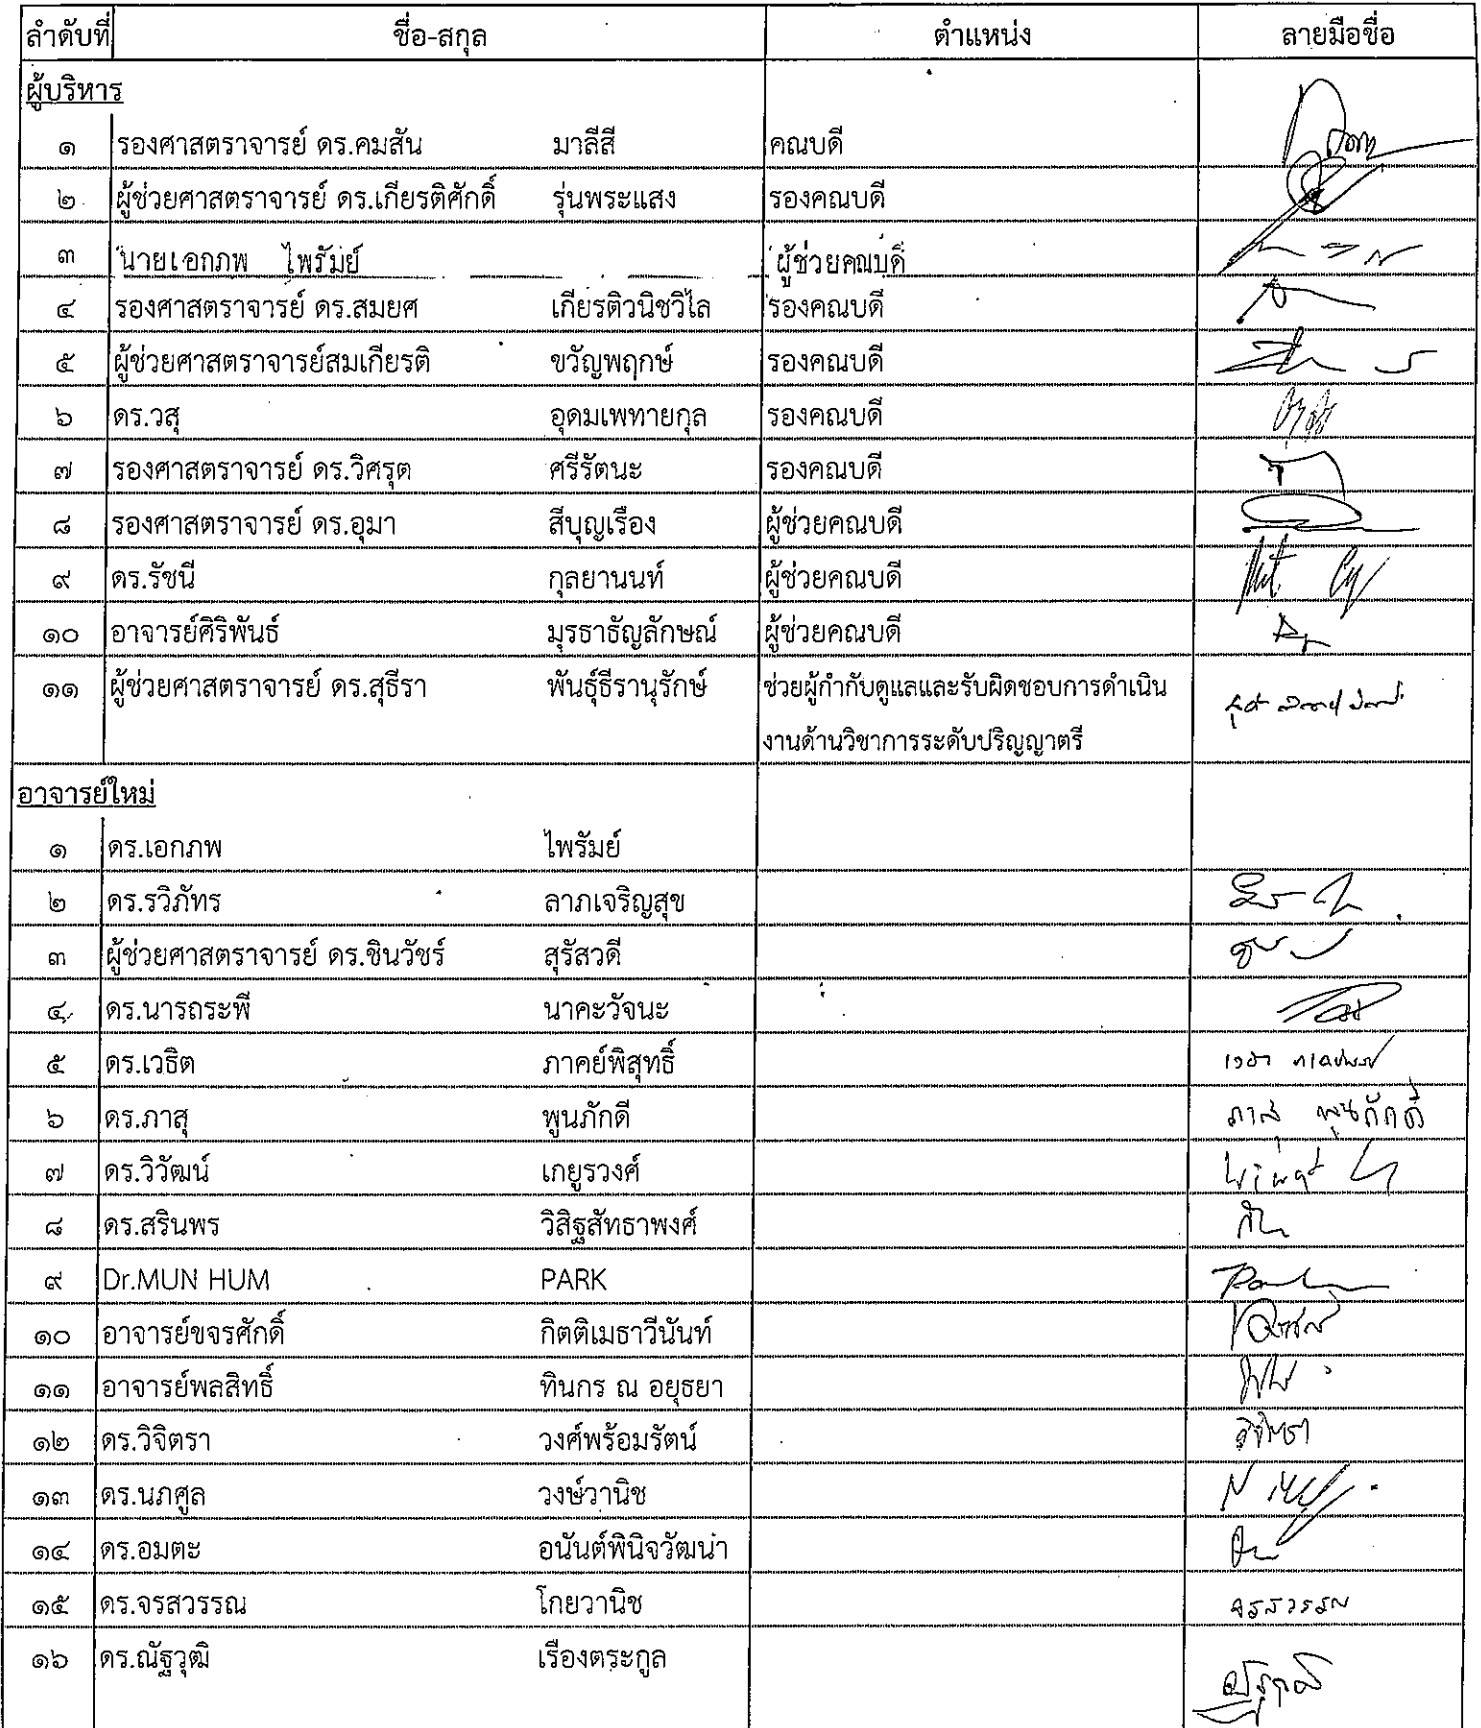 ลำดับที่ ชื่อ-สกุล ตำแหน่ง ลายมือชื่อ
ผู้บริหาร
๑ รองศาสตราจารย์ ดร.คมสัน มาลีสี คณบดี
๒ ผู้ช่วยศาสตราจารย์ ดร.เกียรติศักดิ์ รุ่นพระแสง รองคณบดี
๓ นายเอกภพ ไพรัมย์ ผู้ช่วยคณบดี
๔ รองศาสตราจารย์ ดร.สมยศ เกียรติวนิชวิไล รองคณบดี
๕ ผู้ช่วยศาสตราจารย์สมเกียรติ ขวัญพฤกษ์ รองคณบดี
๖ ดร.วสุ อุดมเพทายกุล รองคณบดี
๗ รองศาสตราจารย์ ดร.วิศรุต ศรีรัตนะ รองคณบดี
๘ รองศาสตราจารย์ ดร.อุมา สีบุญเรือง ผู้ช่วยคณบดี
๙ ดร.รัชนี กุลยานนท์ ผู้ช่วยคณบดี
๑๐ อาจารย์ศิริพันธ์ มุรธาธัญลักษณ์ ผู้ช่วยคณบดี
๑๑ ผู้ช่วยศาสตราจารย์ ดร.สุธีรา พันธุ์ธีรานุรักษ์ ช่วยผู้กำกับดูแลและรับผิดชอบการดำเนิน
งานด้านวิชาการระดับปริญญาตรี
อาจารย์ใหม่
๑ ดร.เอกภพ ไพรัมย์
๒ ดร.รวิภัทร ลาภเจริญสุข
๓ ผู้ช่วยศาสตราจารย์ ดร.ชินวัชร์ สุรัสวดี
๔ ดร.นารถระพี นาคะวัจนะ
๕ ดร.เวธิต ภาคย์พิสุทธิ์
๖ ดร.ภาสุ พูนภักดี ภาสุ พูนภักดี
๗ ดร.วิวัฒน์ เกยูรวงศ์
๘ ดร.สรินพร วิสิฐสัทธาพงศ์
๙ Dr.MUN HUM PARK
๑๐ อาจารย์ขจรศักดิ์ กิตติเมธาวีนันท์
๑๑ อาจารย์พลสิทธิ์ ทินกร ณ อยุธยา
๑๒ ดร.วิจิตรา วงศ์พร้อมรัตน์ วิจิตรา
๑๓ ดร.นภศูล วงษ์วานิช
๑๔ ดร.อมตะ อนันต์พินิจวัฒนา
๑๕ ดร.จรสวรรณ โกยวานิช จรสวรรณ
๑๖ ดร.ณัฐวุฒิ เรืองตระกูล